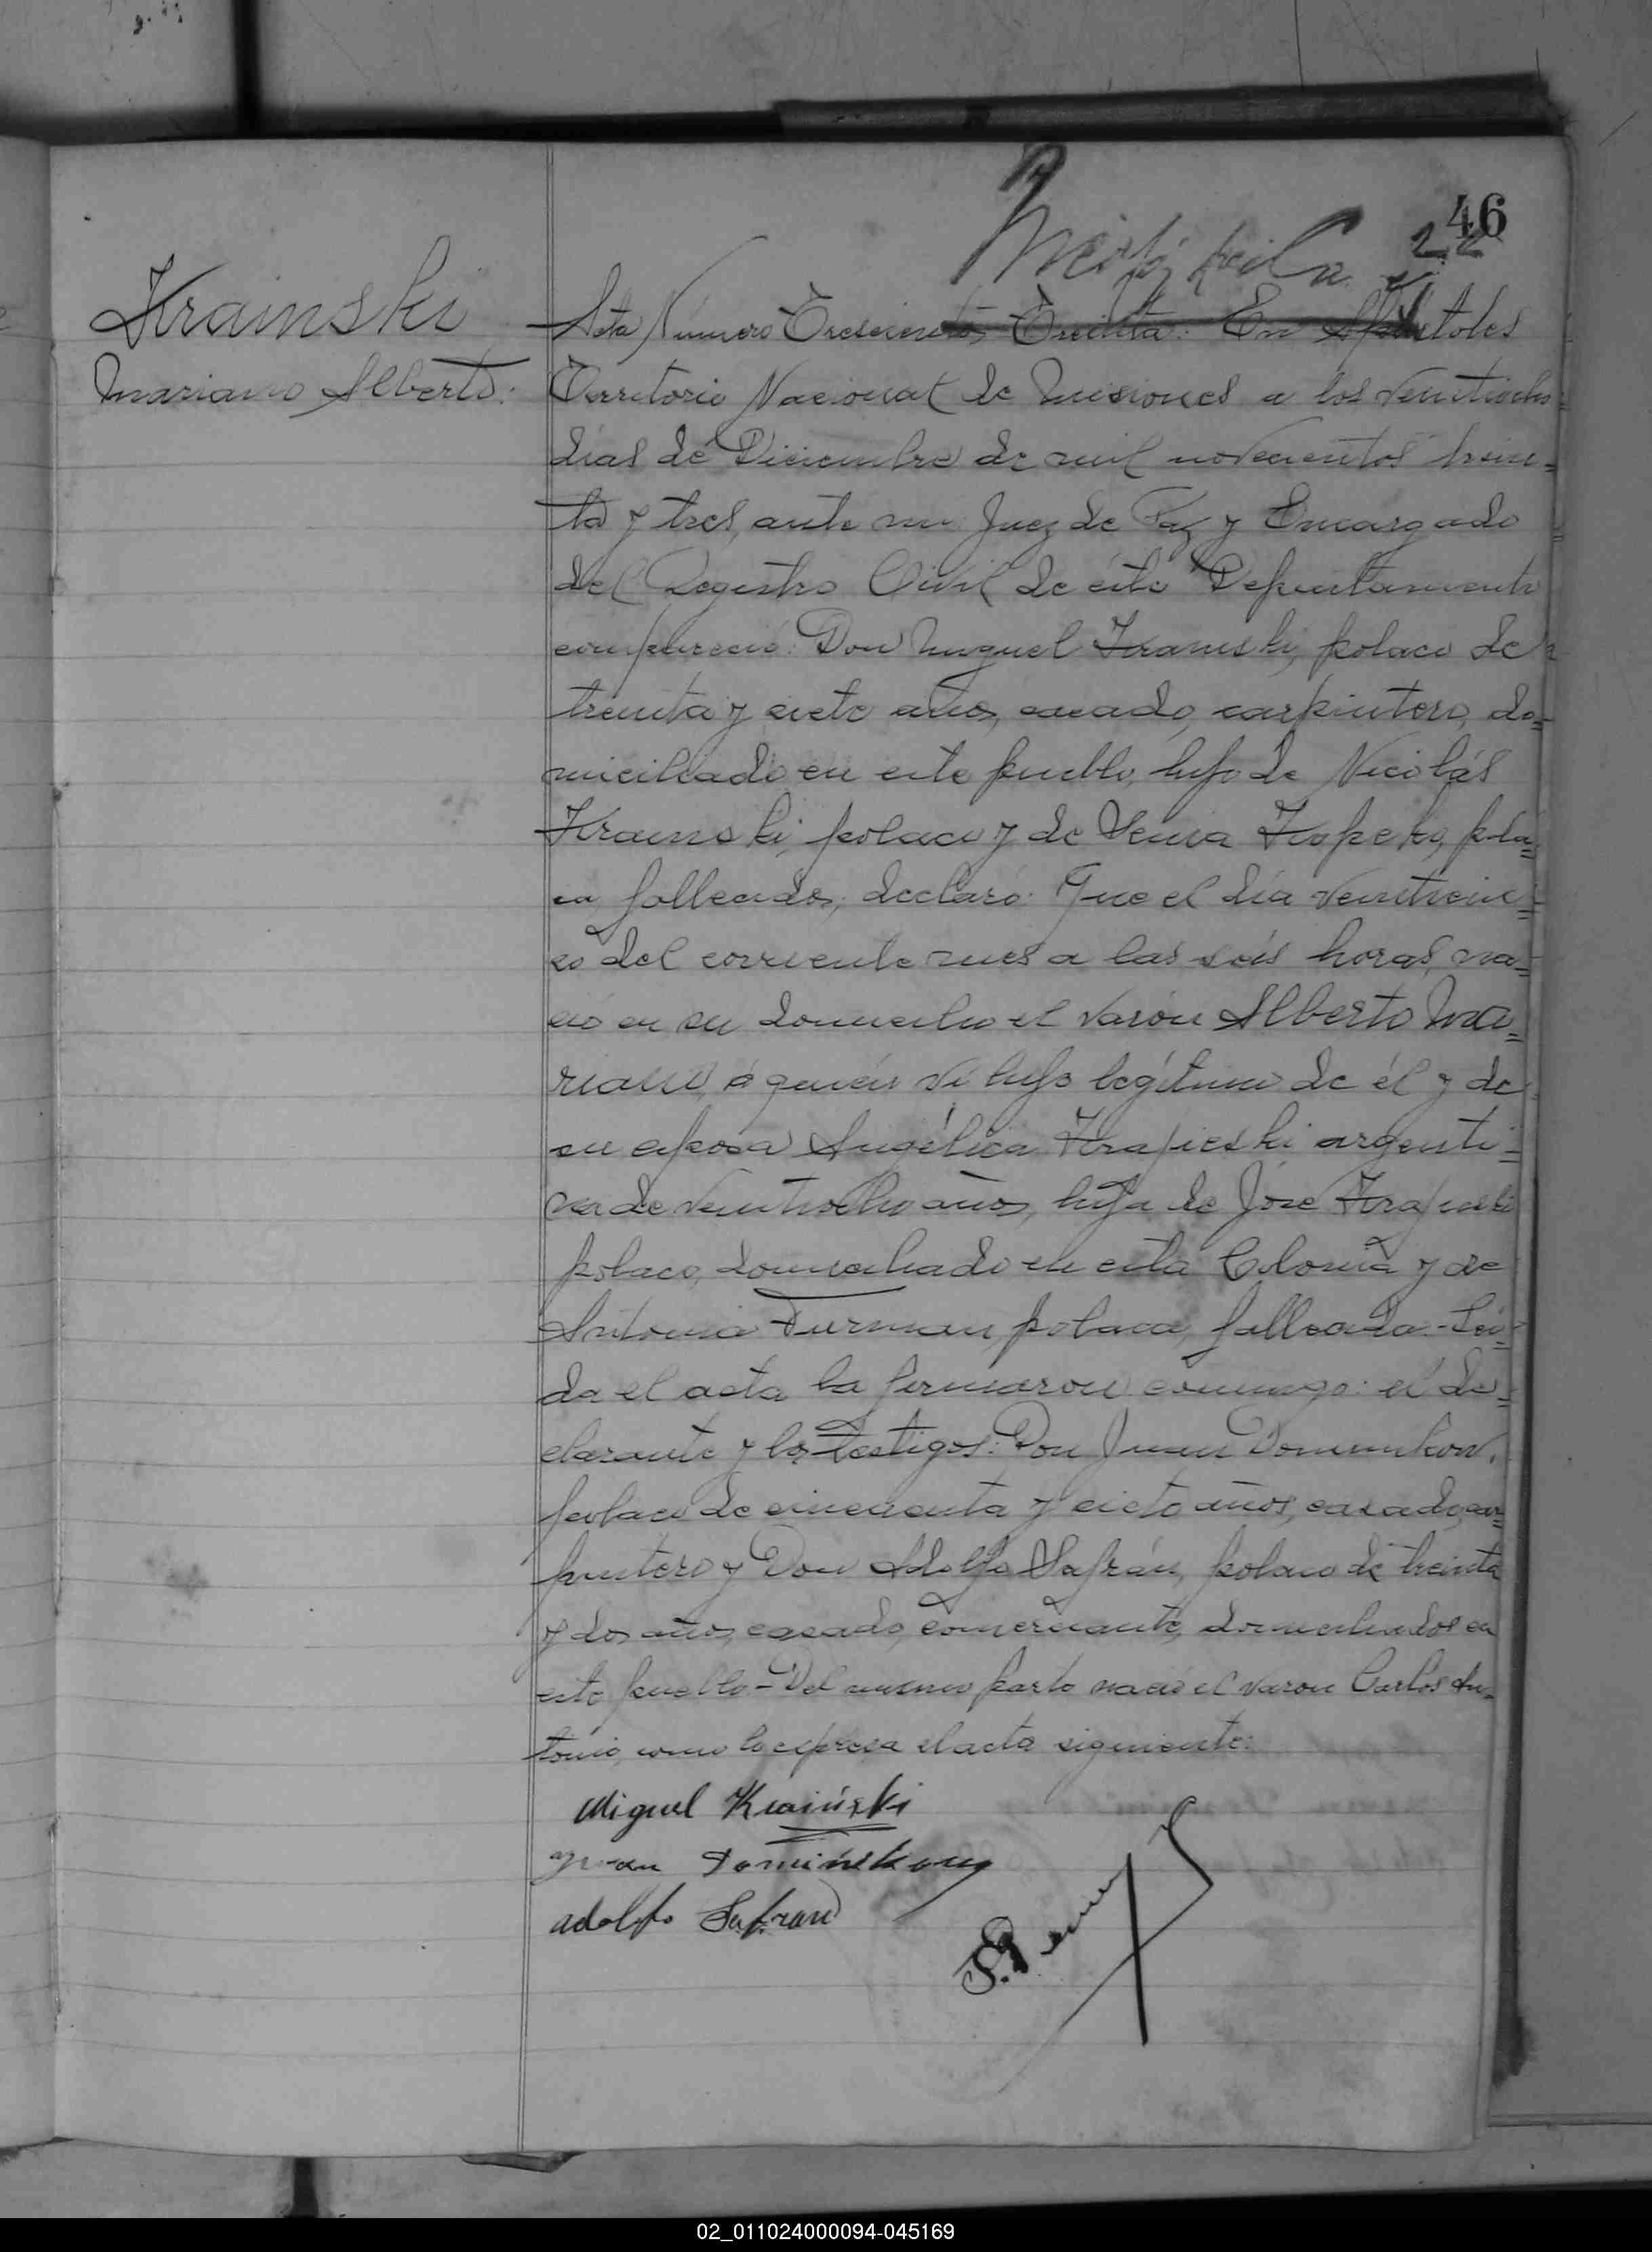 46
22
Krainski
Mariano Alberto.
Acta Número Trescientos Treinta: En Apóstoles
Territorio Nacional de Misiones a los veintiocho
días de Diciembre de mil novecientos trein=
ta y tres, ante mi Juez de Paz y Encargado
del Registro Civil de éste Departamento
compareció: Don Miguel Krainski, polaco de
treinta y siete años, casado, carpintero, do=
miciliado en este pueblo, hijo de Nicolás
Krainski, polaco y de Pola=
ca, fallecidos; declaró: Que el día veinticin=
co del corriente mes a las seis horas, na=
ció en su domicilio el varón Alberto Ma=
riano, á quién vi hijo legítimo de él y de
su esposa Angélica Krajieski argenti=
na de veintiocho años, hija de José Krajieski
polaco, domiciliado en esta Colonia y de
Antonia Furman, polaca, fallecida.- Leí=
da el acta la firmaron conmigo: el de=
clarante y los testigos: Don Juan Dominikow,
polaco de cincuenta y siete años, casado, car=
pintero y Don Adolfo Safrán, polaco de treinta
y dos años, casado, comerciante, domiciliados en
este pueblo.- Del mismo parto nació el varon Carlos An=
tonio, como lo expresa el acta siguiente:
Miguel Kraiński
Juan
Adolfo Safran
02_011024000094-045169